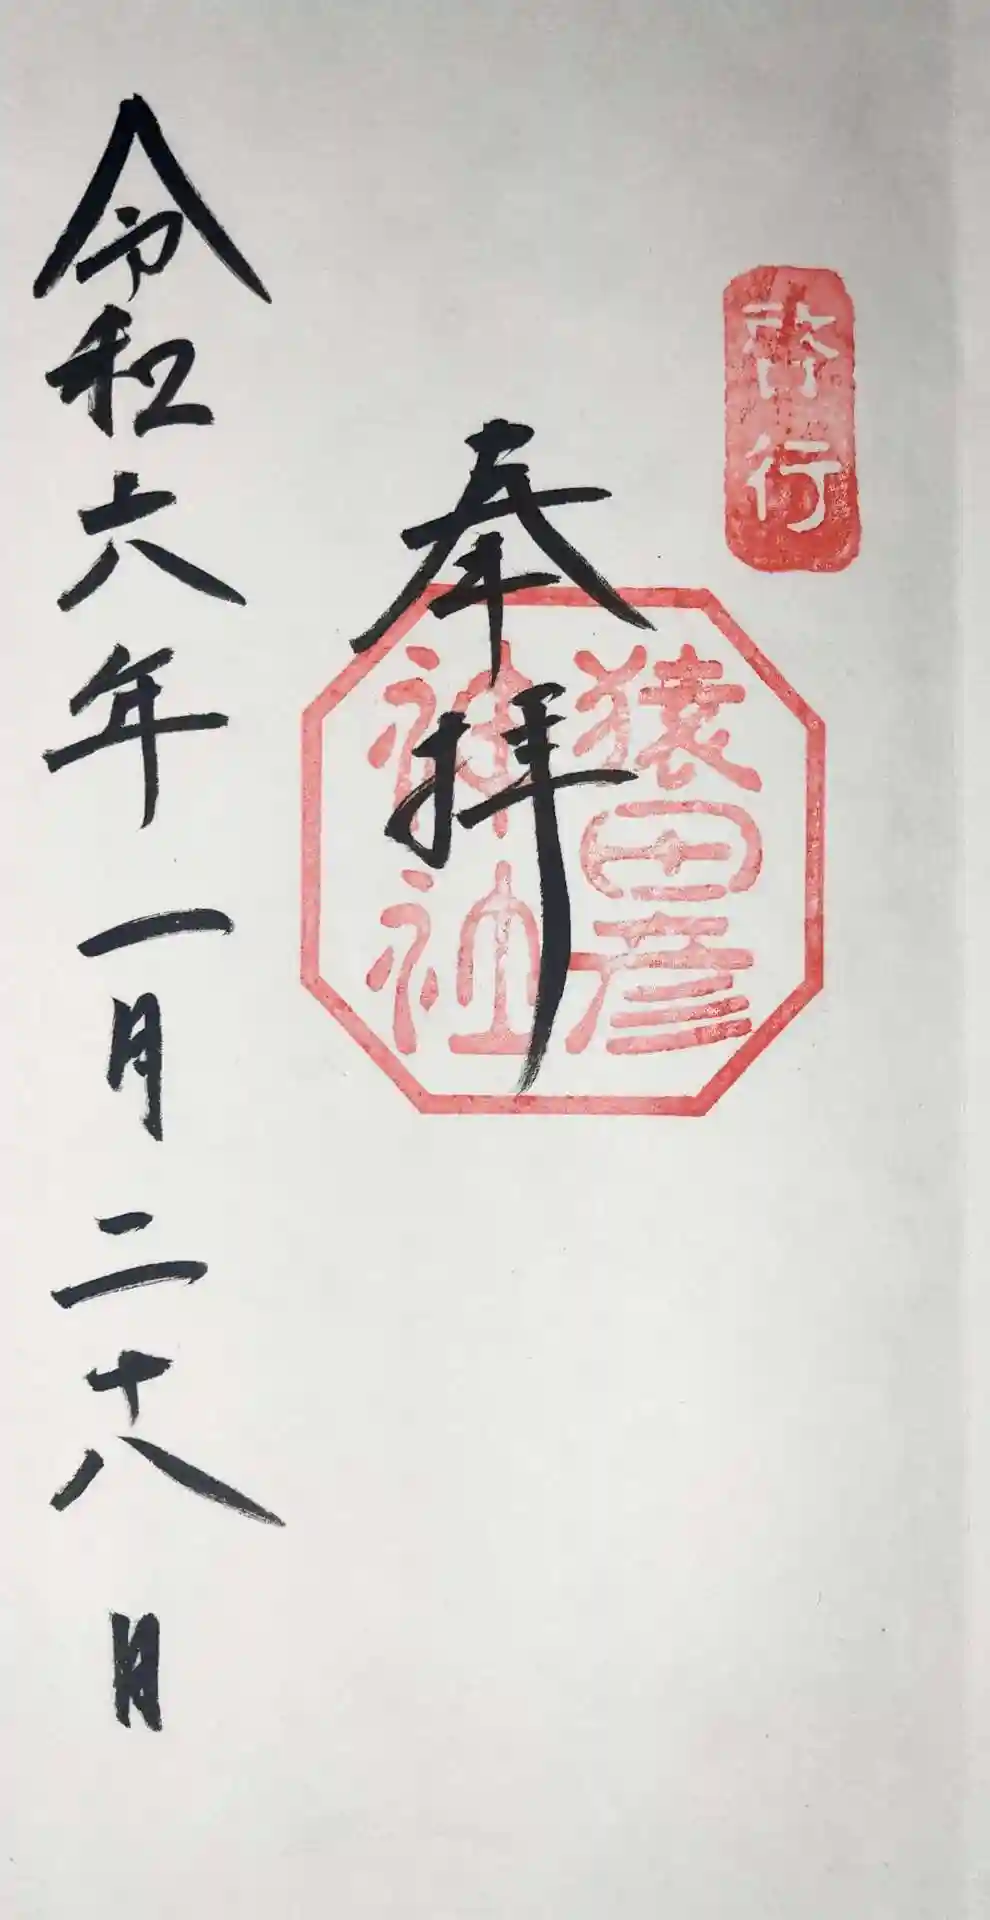 啓行
奉拝
猿田彦
神社
令和六年一月二十八日